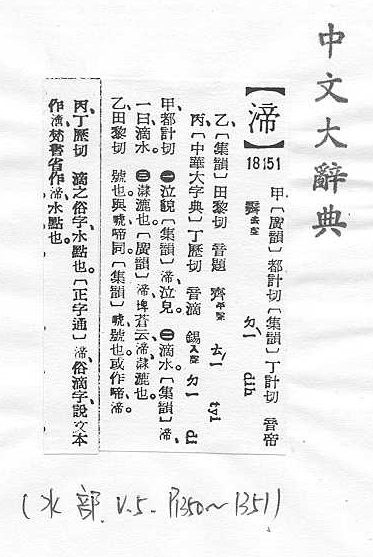 中文大辭典
【渧】
18151
甲〔廣韻〕都計切〔集韻〕丁計切 音帝
霽去聲 ㄉㄧˋ dih
乙〔集韻〕田黎切 音題 齊平聲 ㄊㄧˊ tyi
丙〔中華大字典〕丁歷切 音滴 錫入聲 ㄉㄧ di
甲都計切 ㊀泣貌〔集韻〕渧、泣皃。㊁滴水〔集韻〕渧、
一曰滴水。㊂漉也〔廣韻〕渧、埤蒼云、渧、漉也。
乙田黎切 號也與嗁啼同〔集韻〕嗁、號也或作啼渧。
丙、丁歷切 滴之俗字水點也。〔正字通〕渧、俗滴字說文本
作、梵書省作渧、水點也。
(水部. V.5. P1350~1351)